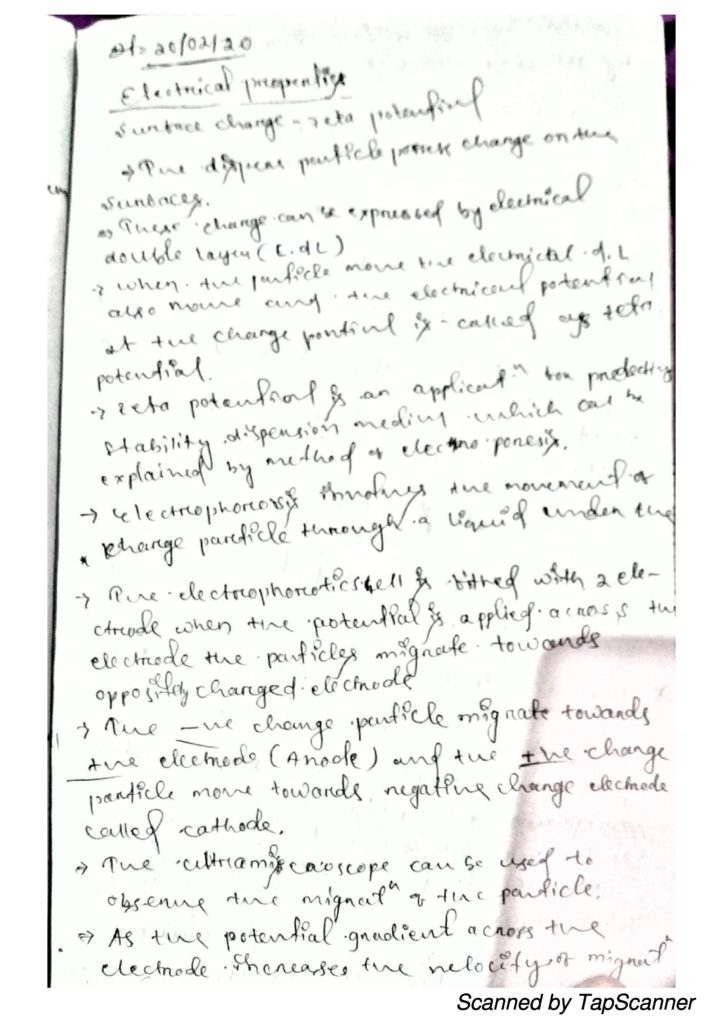 Dt- 20/02/20
Electrical properties
Surface charge - zeta potential
→ The disperse particle posses charge on the
surfaces.
→ These charge can be expressed by electrical
double layer (E.dL)
→ when the particle move the electrical d.L
also move and the electrical potential
at the charge is called as zeta
potential.
→ Zeta potential is an applicatⁿ for predecting
stability dispension medium which can be
explained by method of electro poresis.
→ electrophoresis involves the movement of
* charge particle through a liquid under the
→ The electrophoretics cell is fitted with 2 ele-
ctrode when the potential is applied across the
electrode the particles migrate towards
oppositely charged electrode
→ The -ve charge particle migrate towards
+ve electrode (Anode) and the +ve charge
particle move towards negative charge electrode
called cathode.
→ The ultramicroscope can be used to
observe the migratⁿ of the particle.
→ As the potential gradient across the
electrode increases the velocity of migratⁿ
Scanned by TapScanner